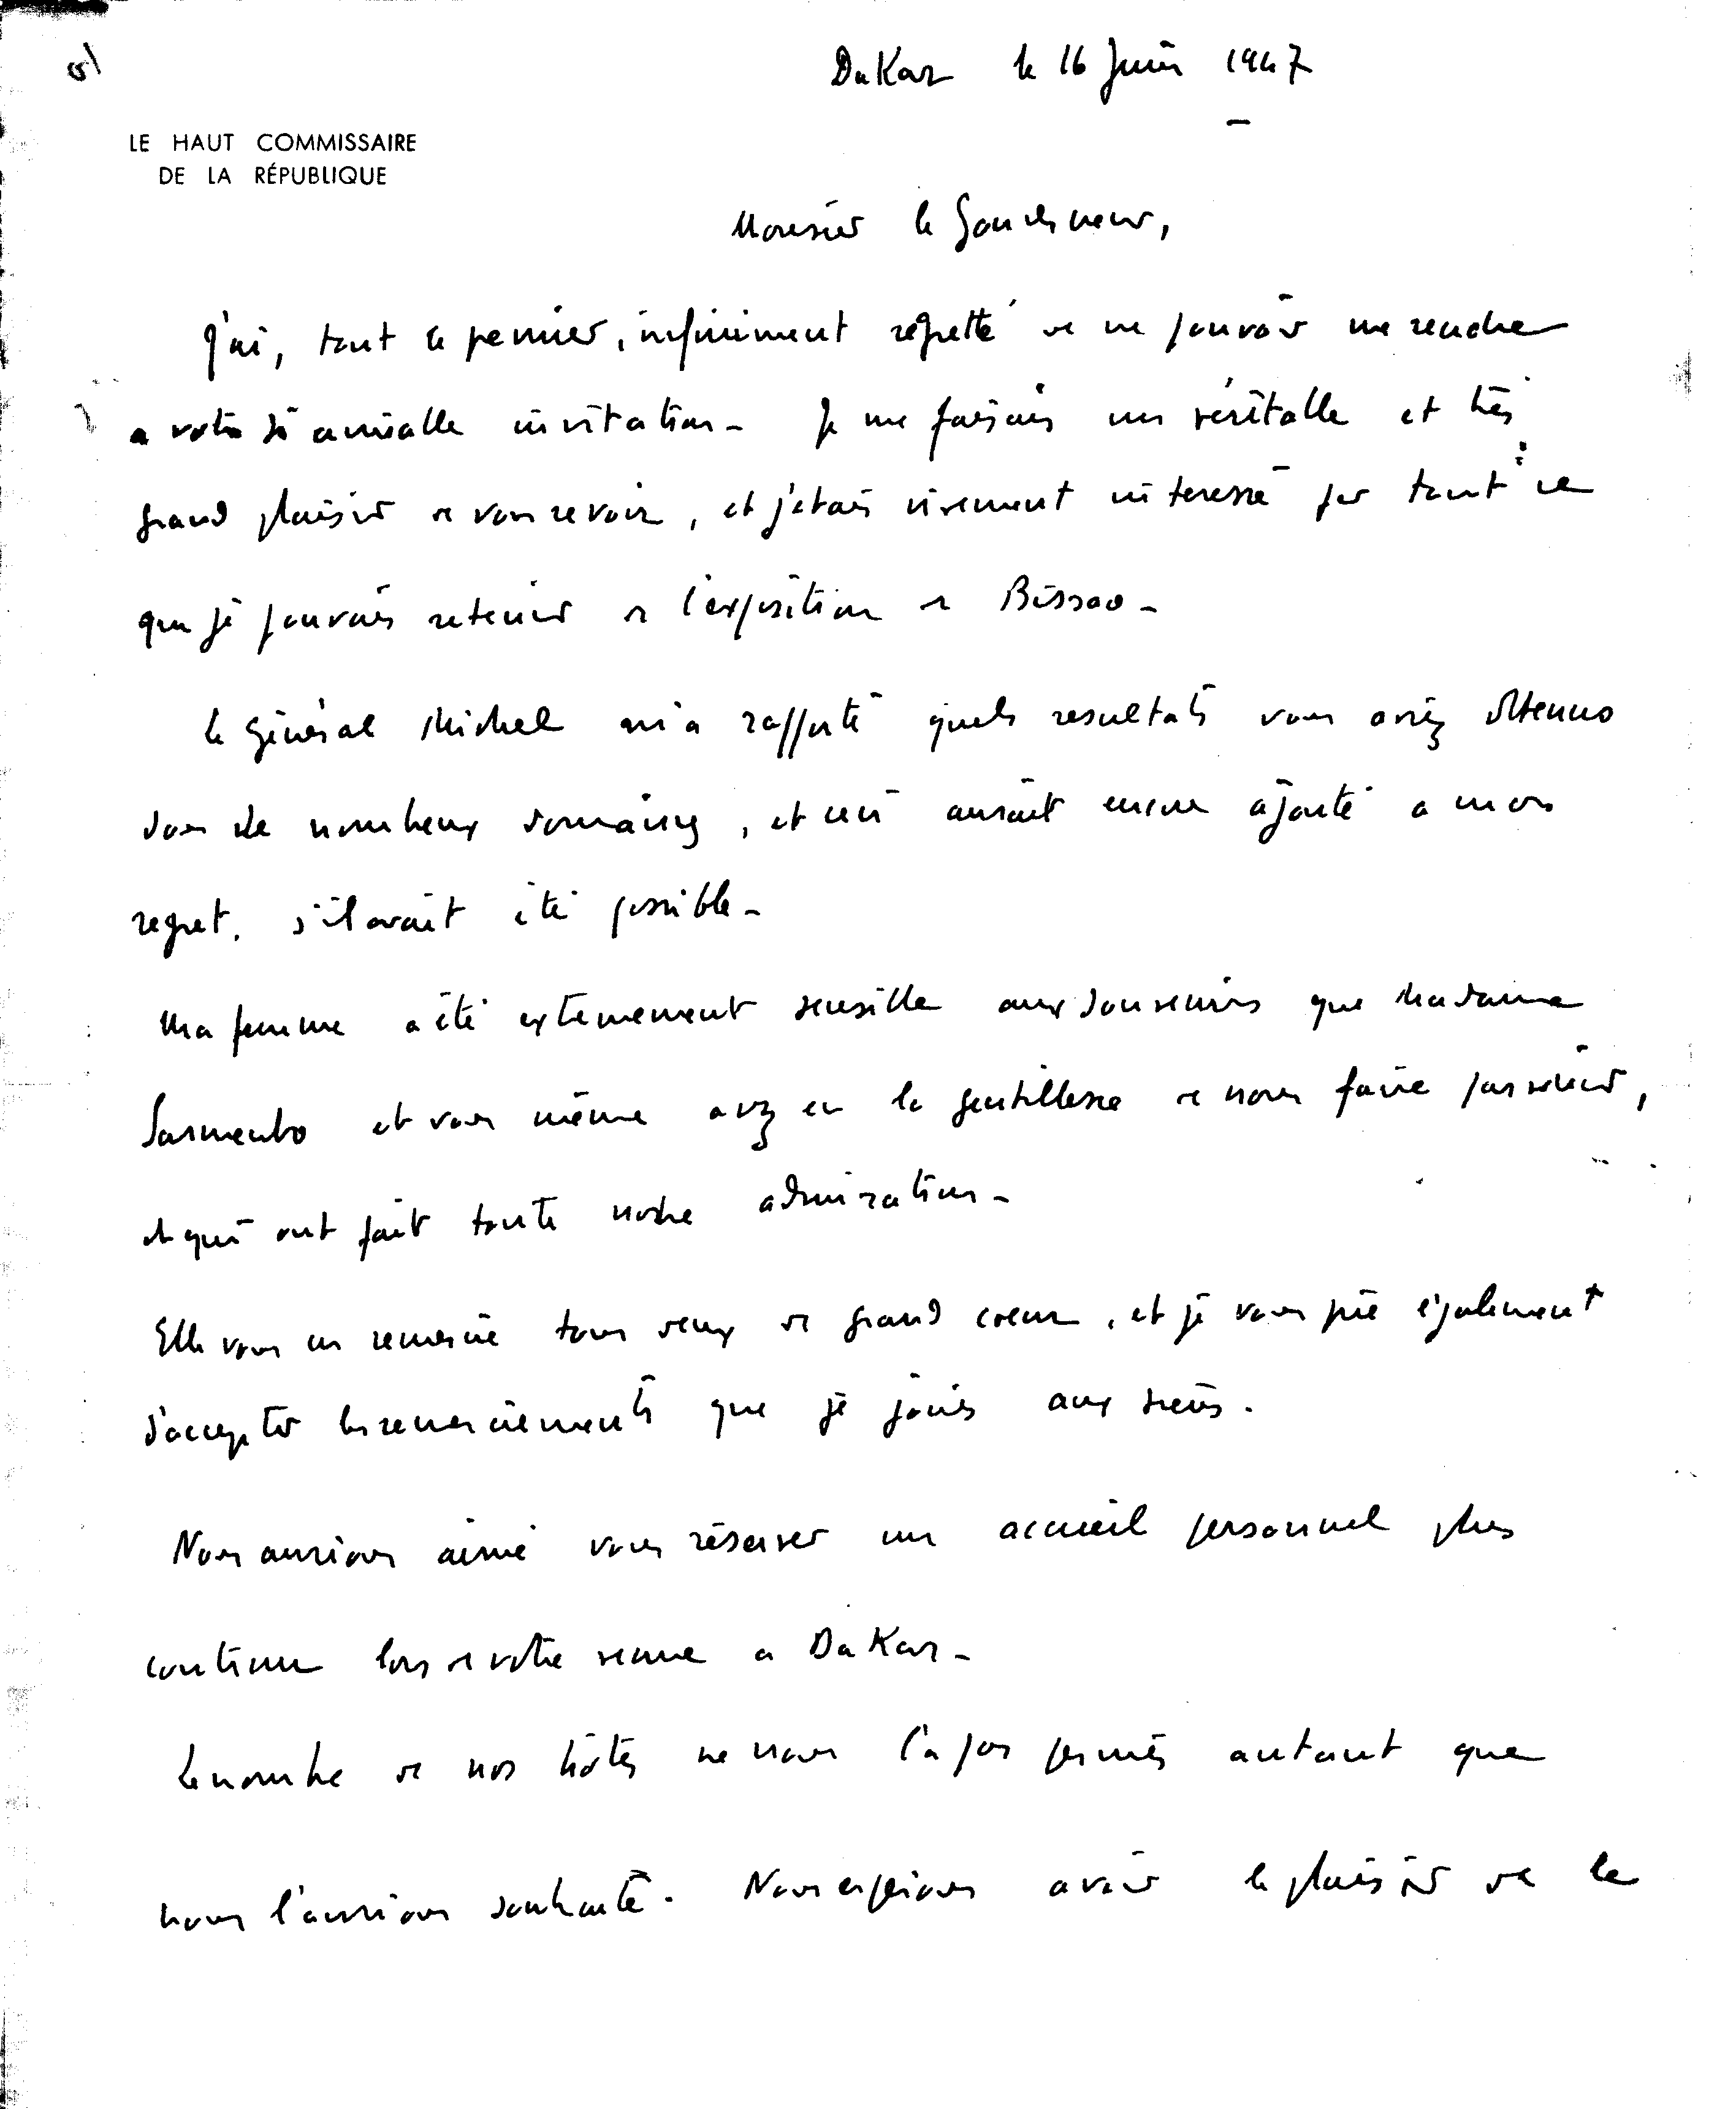 Dakar le 16 Juin 1947
LE HAUT COMMISSAIRE
DE LA RÉPUBLIQUE
Monsieur le Gouverneur,
J'ai, tout le premier, infiniment regretté de ne pouvoir me rendre
a votre si aimable invitation - Je me faisais un véritable et très
grand plaisir de vous revoir, et j'etais vivement interessé par tout ce
que je pouvais retenir de l'exposition de Bissao -
Le Général Michel m'a rapporté quels resultats vous aviez obtenus
dans de nombreux domaines, et ceci aurait encore ajouté a mon
regret, s'il avait été possible -
Ma femme a été extremement sensible aux souvenirs que Madame
Sarmento et vous même avez eu la gentillesse de nous faire parvenir,
et qui ont fait toute notre admiration -
Elle vous en remercie tous deux de grand coeur, et je vous prie également
d'accepter les remerciements que je joins aux siens.
Nous aurions aimé vous réserver un accueil personnel plus
continu lors de votre venue a Dakar -
Le nombre de nos hôtes ne nous l'a pas permis autant que
nous l'aurions souhaité. Nous espérons avoir le plaisir de le